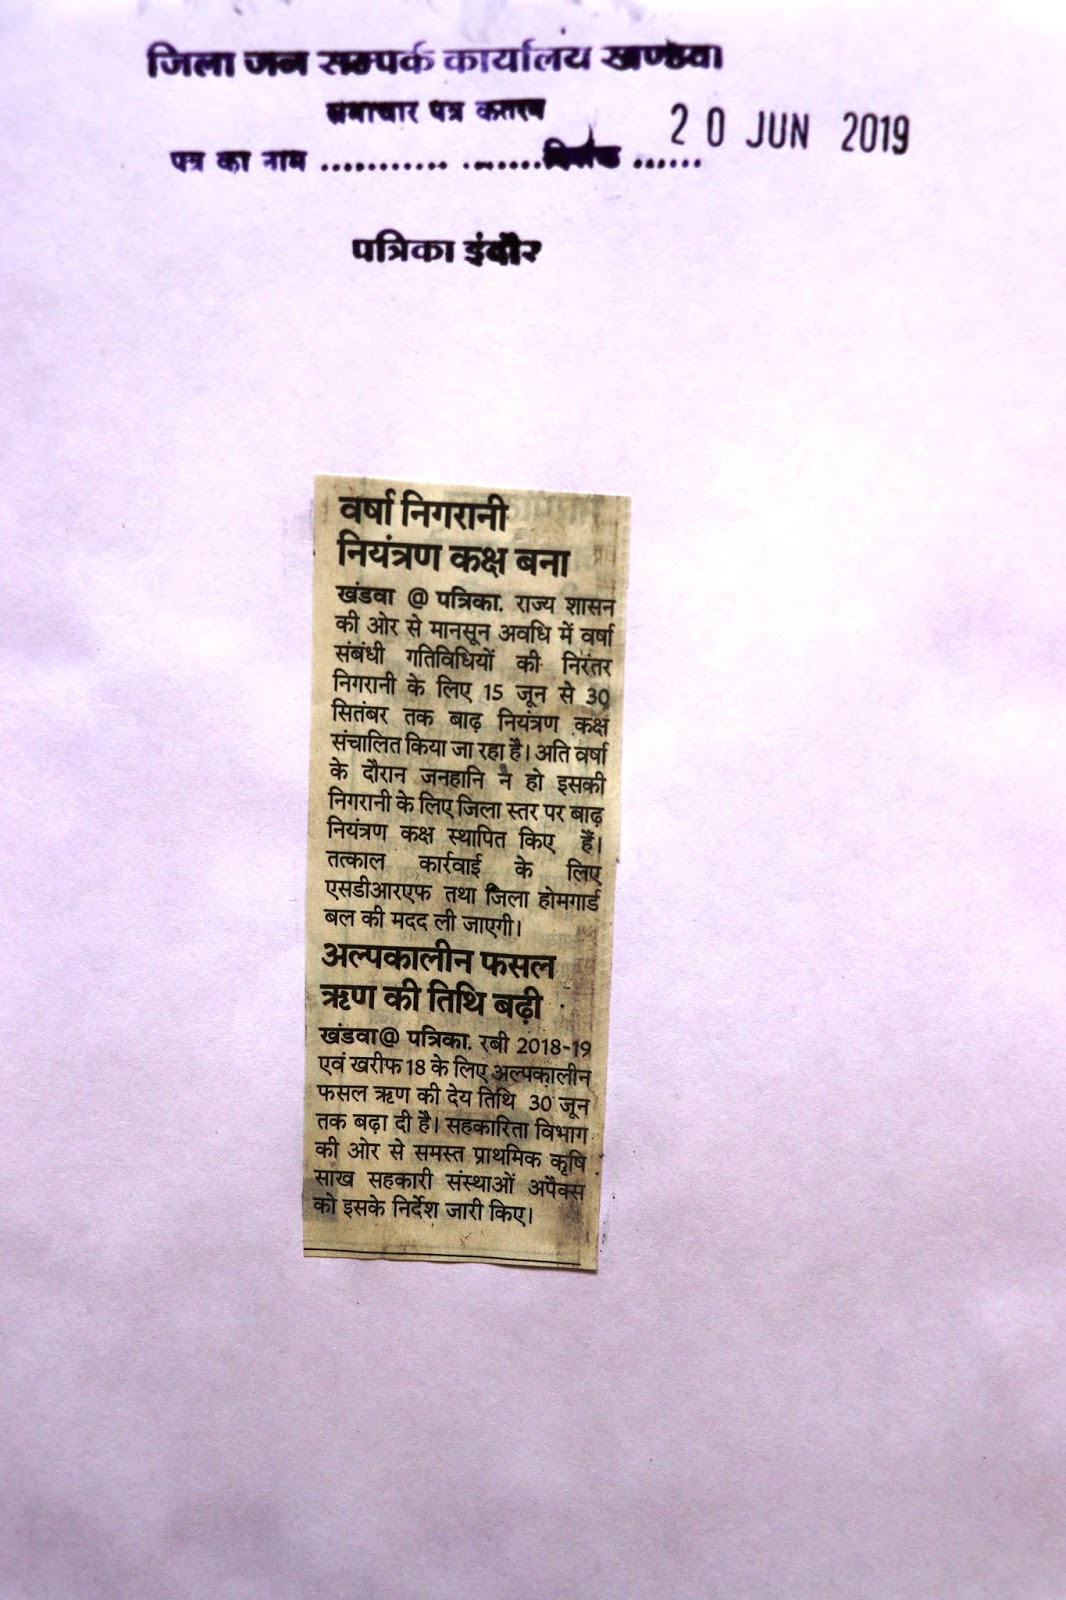 जिला जन सम्पर्क कार्यालय खण्डवा
समाचार पत्र कतरन
पत्र का नाम .................. दिनांक ...... 20 JUN 2019
पत्रिका इंदौर
वर्षा निगरानी
नियंत्रण कक्ष बना
खंडवा @ पत्रिका. राज्य शासन
की ओर से मानसून अवधि में वर्षा
संबंधी गतिविधियों की निरंतर
निगरानी के लिए 15 जून से 30
सितंबर तक बाढ़ नियंत्रण कक्ष
संचालित किया जा रहा है। अति वर्षा
के दौरान जनहानि न हो इसकी
निगरानी के लिए जिला स्तर पर बाढ़
नियंत्रण कक्ष स्थापित किए हैं।
तत्काल कार्रवाई के लिए
एसडीआरएफ तथा जिला होमगार्ड
बल की मदद ली जाएगी।
अल्पकालीन फसल
ऋण की तिथि बढ़ी
खंडवा@ पत्रिका. रबी 2018-19
एवं खरीफ 18 के लिए अल्पकालीन
फसल ऋण की देय तिथि 30 जून
तक बढ़ा दी है। सहकारिता विभाग
की ओर से समस्त प्राथमिक कृषि
साख सहकारी संस्थाओं अपैक्स
को इसके निर्देश जारी किए।